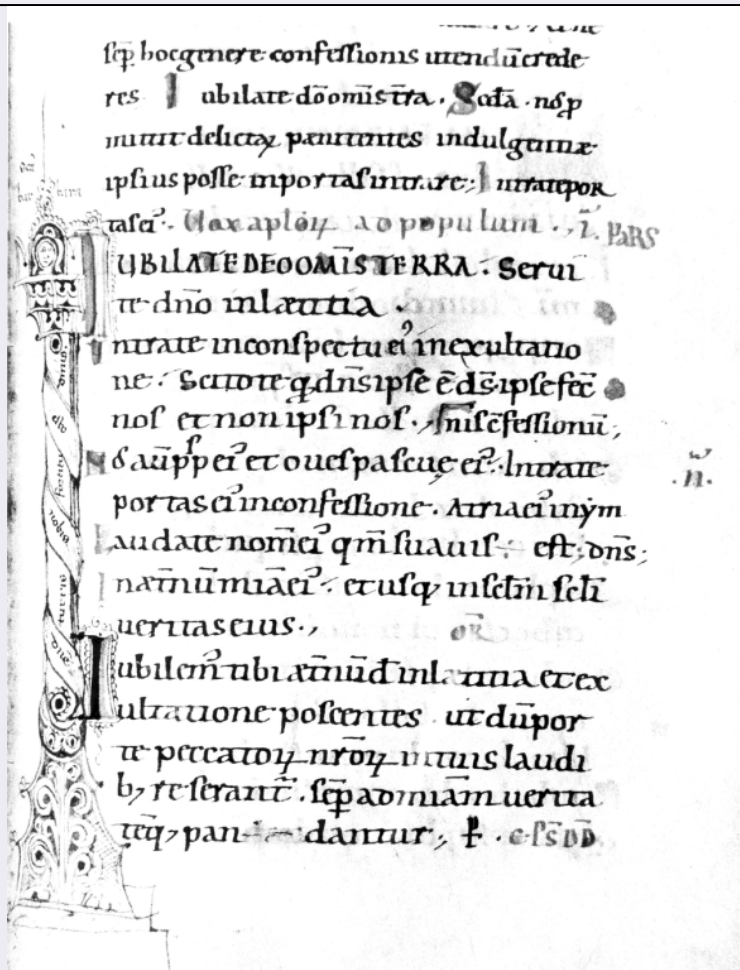 sep̄ hocgenere confessionis utendū crede
res Iubilate dōomīs t̄ra. Sc̄dā.
mittit delictoꝝ pænitentes indulgentiæ
ipsius posse inportas intrare; Intratepor
tasei᾽. Vox aplōꝝ ad populum ., ī. PARS
IUBILATE DEO OMĪS TERRA. Serui
te dn̄o inlætitia.
Intrate inconspectu ei᾽ inexultatio
ne. Scitote qd dn̄s ipse ē ds̄ ipse fec̄
nos et non ipsi nos.
ei᾽ et oues pascuę ei᾽. Intrate
portas ei᾽ inconfessione. Atria ei᾽ inẏm
Laudate nom̄ ei᾽ qm̄ suauis est; dn̄s;
Inæt̄nū mīa ei᾽. et usq; inseclm̄ secli
ueritas eius.,
OR̄
Iubilem᾽ tibi æt̄nū d̄ʼ inlætitia et ex
ultatione poscentes ut dū por
te peccatoꝝ nr̄oꝝ intuis laudi
b; reserant᾽. sep̄ adomiām uerita
teq; pan dantur; P. C PS DD
.n.